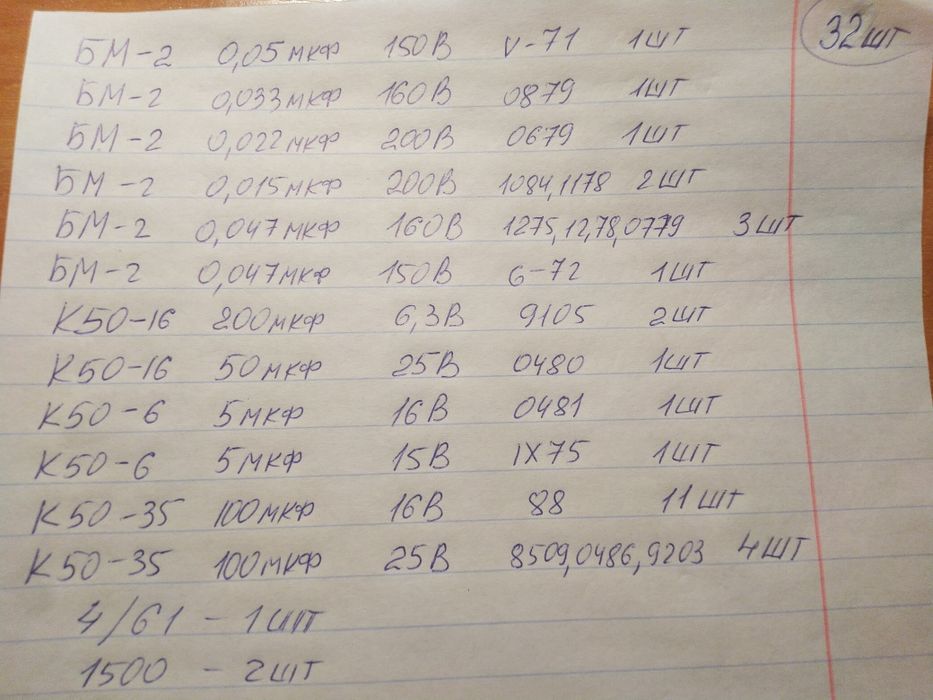 БМ-2 0,05мкф 150В V-71 1шт 32шт
БМ-2 0,033мкф 160В 0879 1шт
БМ-2 0,022мкф 200В 0679 1шт
БМ-2 0,015мкф 200В 1084,1178 2шт
БМ-2 0,047мкф 160В 1275,12,78,0779 3шт
БМ-2 0,047мкф 150В 6-72 1шт
К50-16 200мкф 6,3В 9105 2шт
К50-16 50мкф 25В 0480 1шт
К50-6 5мкф 16В 0481 1шт
К50-6 5мкф 15В IX75 1шт
К50-35 100мкф 16В 88 11шт
К50-35 100мкф 25В 8509,0486,9203 4шт
4/61 - 1шт
1500 - 2шт